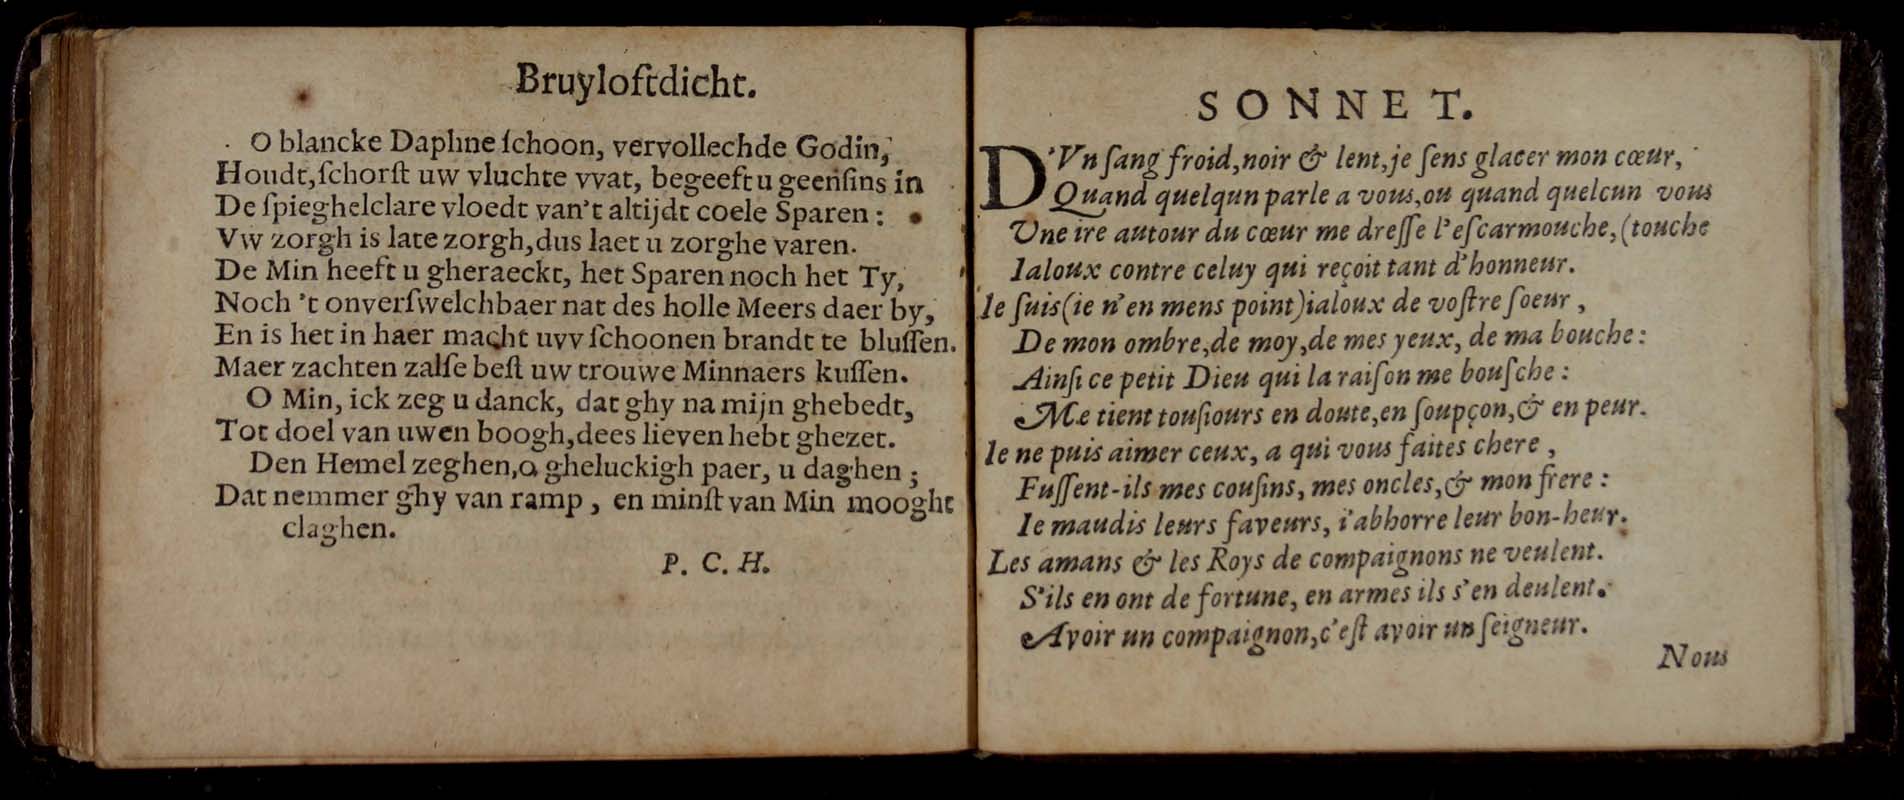 Bruyloftdicht.
O blancke Daphne ſchoon, vervollechde Godin,
Houdt, ſchorſt uw vluchte vvat, begeeft u geenſins in
De ſpieghelclare vloedt van't altijdt coele Sparen:
Vw zorgh is late zorgh, dus laet u zorghe varen.
De Min heeft u gheraeckt, het Sparen noch het Ty,
Noch 't onverſwelchbaer nat des holle Meers daer by,
En is het in haer macht uvv ſchoonen brandt te bluſſen.
Maer zachten zalſe beſt uw trouwe Minnaers kuſſen.
O Min, ick zeg u danck, dat ghy na mijn ghebedt,
Tot doel van uwen boogh, dees lieven hebt ghezet.
Den Hemel zeghen, o gheluckigh paer, u daghen;
Dat nemmer ghy van ramp, en minſt van Min mooght
claghen.
P. C. H.
SONNET.
D'Vn ſang froid, noir & lent, je ſens glacer mon cœur,
Quand quelqun parle a vous, ou quand quelcun vous
Une ire autour du cœur me dreſſe l'eſcarmouche, (touche
Ialoux contre celuy qui reçoit tant d'honneur.
Ie ſuis (ie n'en mens point) ialoux de voſtre ſoeur,
De mon ombre, de moy, de mes yeux, de ma bouche:
Ainſi ce petit Dieu qui la raiſon me bouſche:
Me tient touſiours en doute, en ſoupçon, & en peur.
Ie ne puis aimer ceux, a qui vous faites chere,
Fuſſent-ils mes couſins, mes oncles, & mon frere:
Ie maudis leurs faveurs, i'abhorre leur bon-heur.
Les amans & les Roys de compaignons ne veulent.
S'ils en ont de fortune, en armes ils s'en deulent.
Avoir un compaignon, c'eſt avoir un ſeigneur.
Nous